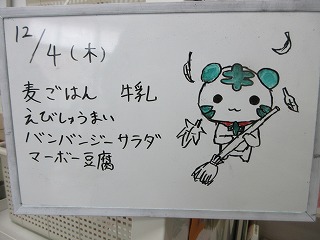 12/4(木)
麦ごはん 牛乳
えびしゅうまい
バンバンジーサラダ
マーボー豆腐